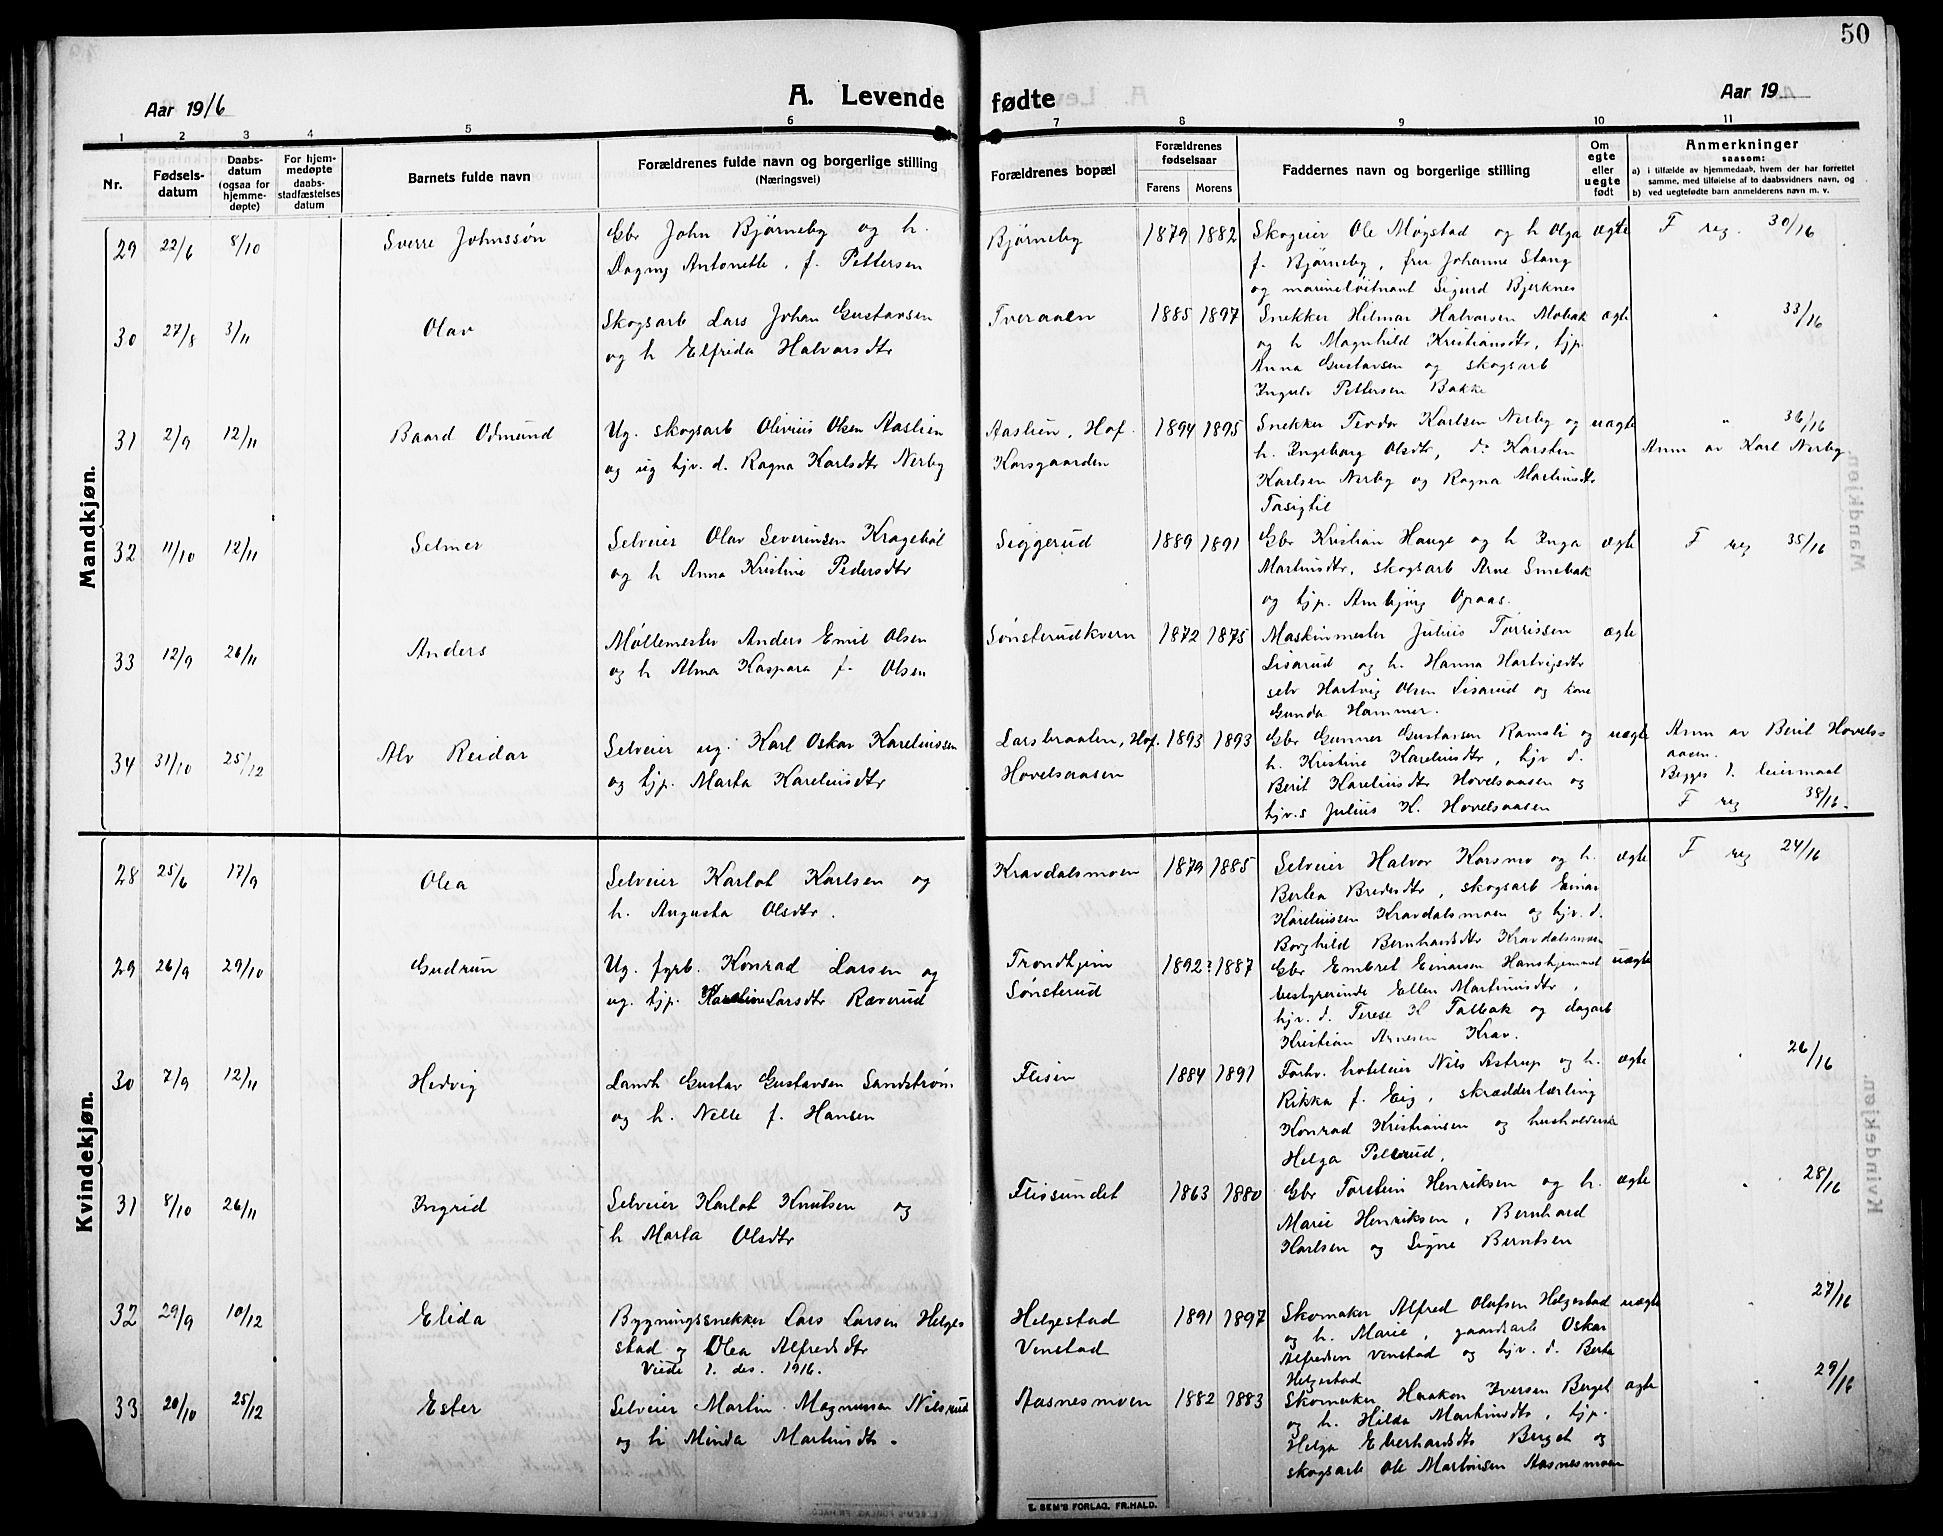 50
Aar 1916
A. Levende fødte
Aar 19
1 2 3 4 5 6 7 8 9 10 11
Nr.
Fødsels-
datum
Daabs-
datum
(ogsaa for
hjemme-
døpte)
For hjem-
medøpte
daabs-
stadfæstelses
datum
Barnets fulde navn
Forældrenes fulde navn og borgerlige stilling
(Næringsvei)
Forældrenes bopæl
Forældrenes
fødselsaar
Farens Morens
Faddernes navn og borgerlige stilling
Om
egte
eller
uegte
født
Anmerkninger
saasom:
a) i tilfælde av hjemmedaab, hvem der har forrettet
samme, med tilføielse af to daabsvidners navn, og
b) ved uegtefødte barn anmelderens navn m. v.
Mandkjøn.
29 22/6 8/10 Sverre Johnssøn
Gbr John Bjørneby og h.
Dagny Antonette, f. Pettersen
Bjørneby 1879 1882
Skogeier Ole Møystad og h Olga
f. Bjørneby, fru Johanne Stang
og marineløitnant Sigurd Bjerknes
ægte F reg. 30/16
30 27/8 3/11 Olav
Skogsarb Lars Johan Gustavsen
og h Elfrida Halvorsdtr
Tveraaen 1885 1897
Snekker Hilmar Halvorsen Mobak
og h Magnhild Kristiansdtr, tjp.
Anna Gustavsen og skogsarb
Ingulv Pettersen Bakke
ægte " 33/16
31 2/9 12/11 Baard Odmund
Ug. skogsarb Olivius Olsen Aaslien
og ug tjv. d. Ragna Karlsdtr Nerby
Aaslien, Hof.
Korsgaarden
1894 1895
Snekker Teodor Karlsen Nerby og
h. Ingeborg Olsdtr, d: Karsten
Karlsen Nerby og Ragna Martinsdtr
uægte " 36/16
Anm av Karl Nerby
32 11/10 12/11 Selmer
Selveier Olav Severinsen Kragebøl
og h Anna Kristine Pedersdtr
Siggerud 1889 1891
Gbr Kristian Hauge og h Inga
Martinsdtr, skogsarb Arne Smebak
og tjp. Ambjørg Opaas.
ægte F reg 35/16
33 12/9 26/11 Anders
Møllemester Anders Emil Olsen
og h Alma Kaspara f. Olsen
Sønsterudkvern 1872 1875
Maskinmester Julius Torrissen
Lisarud og h. Hanna Hartvigsdtr
selv Hartvig Olsen Lisarud og kone
Gunda Hammer.
ægte
34 31/10 25/12 Alv Reidar
Selveier ug. Karl Oskar Kareliussen
og tjp. Marta Kareliusdtr
Larsbraaten, Hof.
Hovelsaasen
1893 1893
Gbr Gunner Gustavsen Ramsli og
h. Kristine Kareliusdtr, tjv d.
Berit Kareliusdtr Hovelsaasen og
tjv.s Julius K. Hovelsaasen
uægte Anm av Berit Hovels-
aasen.
Begges 1. leiermaal
F reg 38/16.
Kvindekjøn.
28 25/6 17/9 Olea
Selveier Karlot Karlsen og
h. Augusta Olsdtr.
Kravdalsmoen 1879 1885
Selveier Halvor Korsmo og h.
Bertea Bredesdtr, skogsarb Einar
Kareliussen Kravdalsmoen og tjv. d.
Borghild Bernhardsdtr Kravdalsmoen
ægte F reg 24/16
29 26/9 29/10 Gudrun
Ug. fyrb. Konrad Larsen og
ug. tjp. Karoline Larsdtr Ræverud
Trondhjem
Sønsterud
1892? 1887
Gbr Embret Einarsen Hanshjemmet
bestyrerinde Ellen Martinusdtr,
tjv. d. Terese K Talbak og dagarb
Kristian Arnesen Krav.
uægte
30 7/9 12/11 Hedvig
Landh Gustav Gustavsen Sandstrøm
og h. Nelle f. Hansen
Flisen 1884 1891
Forhv. hoteleier Nils Astrup og h.
Rikka f. Eig, skrædderlærling
Konrad Kristiansen og husholderske
Helga Pellerud.
ægte " 26/16
31 8/10 26/11 Ingrid
Selveier Karlot Knutsen og
h Marta Olsdtr
Flissundet 1863 1880
Gbr Torstein Henriksen og h.
Marie Henriksen, Bernhard
Karlsen og Signe Berntsen
ægte " 28/16
32 29/9 10/12 Elida
Bygningssnekker Lars Larsen Helges
stad og Olea Alfredsdtr
Viede 2. des. 1916.
Helgestad
Venstad
1891 1897
Skomaker Alfred Olafsen Helgestad
og h. Marie, gaardsarb Oskar
Alfredsen Venstad og tjv. d. Berta
Helgestad
uægte " 27/16
33 20/10 25/12 Ester
Selveier Martin Magnussen Nilsrud
og h Minda Martinsdtr.
Aasnesmoen 1882 1883
Skomaker Haakon Iversen Berget
og h. Hilda Martinsdtr, tjp.
Helga Eberhardsdtr Berget og
skogsarb Ole Martinsen Aasnesmoen
ægte 29/16
E. SEM'S FORLAG, FR.HALD.